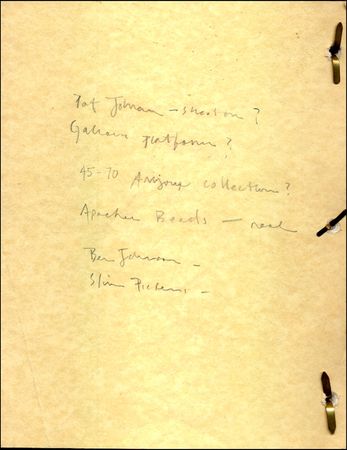 Pat Johnson - shotgun?
Gallows platform?
45-70 Arizona collection?
Apache Beads — real
Ben Johnson -
Slim Pickens -